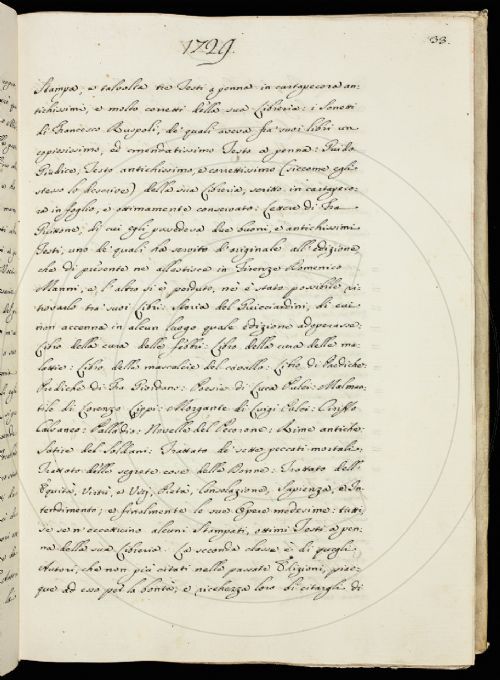 1729.
33.
Stampa, e talvolta tre Testi a penna in cartapecora an-
tichissimi, e molto corretti della sua Libreria: i Sonetti
di Francesco Ruspoli, de' quali aveva fra' suoi libri un
copiosissimo, ed emendatissimo Testo a penna: Guido
Giudice, Testo antichissimo, e correttissimo (siccome egli
stesso lo descrive) della sua Libreria, scritto in cartapeco-
ra in foglio, e ottimamente conservato: Lettere di Fra
Guittone, di cui egli possedeva due buoni, e antichissimi
Testi, uno de' quali ha servito d'originale all'edizione,
che di presente ne allestisce in Firenze Domenico
Manni, e l'altro si è perduto, né è stato possibile ri-
trovarlo tra' suoi Libri: Storia del Guicciardini, di cui
non accenna in alcun luogo quale edizione adoperasse:
Libro della cura delle febbri: Libro della cura delle ma-
lattie: Libro della mascalcie del cavallo: Libro di Prediche:
Prediche di Fra Giordano: Poesie di Luca Pulci: Malman-
tile di Lorenzo Lippi: Morgante di Luigi Pulci: Ciriffo
Calvaneo: Palladio: Novelle del Pecorone: Rime antiche:
Satire del Soldani: Trattato de' sette peccati mortali:
Trattato delle segrete cose delle Donne: Trattato dell'
Equità, Virtù, e Vizj, Pietà, Consolazione, Sapienza, e In-
tendimento; e finalmente le sue Opere medesime: tutti,
se sen'eccettuino alcuni Stampati, ottimi Testi a pen-
na della sua Libreria. La seconda classe è di quegli
Autori, che non più citati nelle passate Edizioni, piac-
que ad esso per la bontà, e ricchezza loro di citargli di